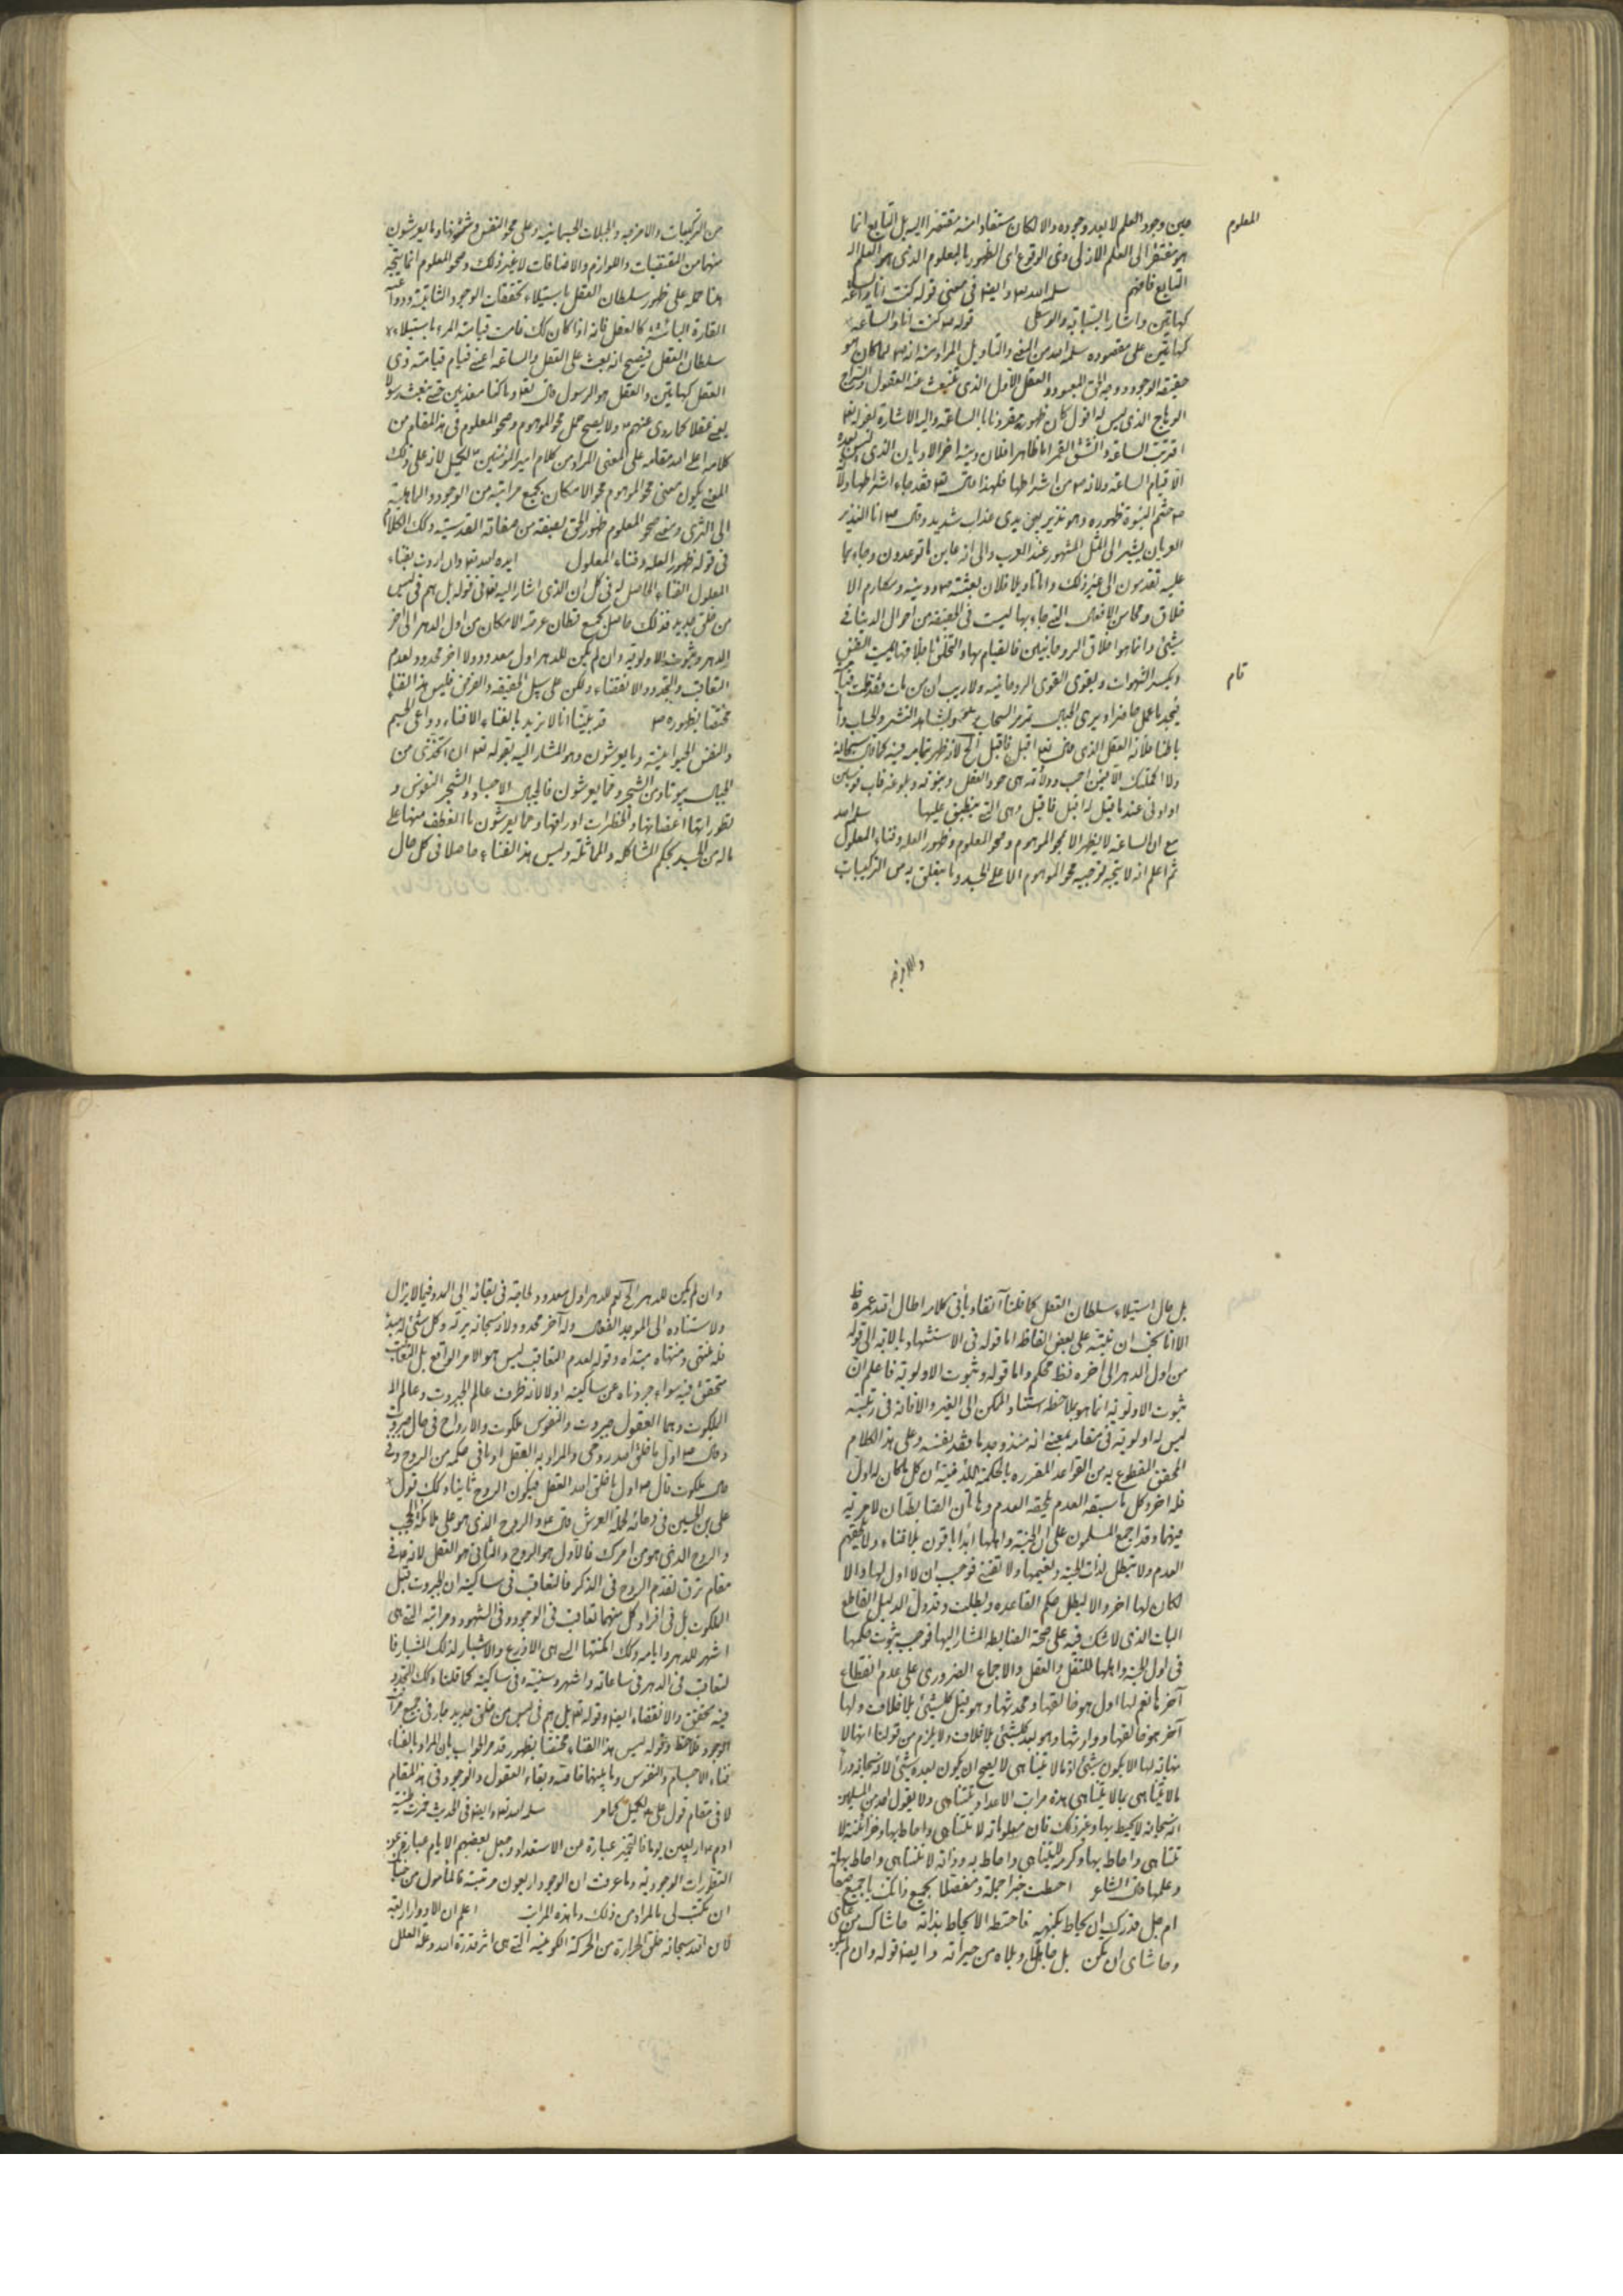 المعلوم
حين وجود العلم لا بعد وجوده والا لكان مستفادا منه مفتقرا اليه بل التابع انما
هو مفتقر الى العلم الازلي وفي الوقوع اي الظهور بالمعلوم الذي هو العلم
التابع فافهم سلمه الله تع وايضا في معنى قوله كنت انا والساعة
كهاتين واشار بالسبابة والوسطى قوله ص كنت انا والساعة
كهاتين على مقصوده سلمه الله من النص والتاويل المراد منه انه ص لما كان هو
حقيقة الوجود ووجه الحق المعبود والعقل الاول الذي تنبعث عنه العقول والسراج
الوهاج الذي ليس له افول كان ظهوره مقرونا بالساعة واليه الاشارة بقوله تع
اقتربت الساعة وانشق القمر اما ظاهرا فلان دينه اخر الاديان الذي ليس بعده
الا قيام الساعة ولانه ص من اشراطها فلهذا قال تع فقد جاء اشراطها ولان
ص ختم النبوة بظهوره وهو نذير بين يدي عذاب شديد وقال ص انا النذير
العريان يشير الى المثل المشهور عند العرب والى انه عاين ما توعدون وجاء بما
عليه تقدمون الى غير ذلك واما تاويلا فلان بعثته ص ودينه ومكارم الا
خلاق ومحاسن الافعال التي جاء بها ليست في الحقيقة من احوال الدنيا في
شيئ وانما هو اخلاق الروحانيين فالقيام بها والتخلق باخلاقها يميت النفس
ويكسر الشهوات ويقوى القوى الروحانية ولا ريب ان من مات فقد قامت قيامته
تام
فيجد ما عمل حاضرا ويرى الجبال تمر مر السحاب ويشاهد النشر والحساب واما
باطنا فلانه العقل الذي قال تعا اقبل فاقبل الخ لانه ظهر بتمامه فيه كما قال سبحانه
ولا اكملتك الا فيمن احب وولادته هي حد العقل وبلوغه قاب قوسين
او ادنى عندما قيل له اقبل فاقبل وهي التي ينطبق عليها سلمه الله
مع ان الساعة لا يظهر الا بمحو الموهوم وصحو المعلوم وظهور العلة وفناء المعلول
ثم اعلم انه لا يتجه توجيه محو الموهوم الا على الجسد وما يتعلق به من التركيبات
والامزجة
من التركيبات والامزجة والجبلات الجسمانية وعلى محو النفس وشئونها وما يعرشون
منها من المقتضيات واللوازم والاضافات لا غير ذلك وصحو المعلوم انما يتجه
هنا حمله على ظهور سلطان العقل باستيلاء تحققات الوجود الثابتة ودواعيه
القارة الباقية كالعقل فانه اذا كان كك قامت قيامة المرء باستيلاء
سلطان العقل فيصح انه بعث على العقل والساعة اعني قيام قيامته ذي
العقل كهاتين والعقل هو الرسول قال تعا وما كنا معذبين حتى نبعث رسولا
يعني عقلا كما روي عنهم ع ولا يصح حمل محو الموهوم وصحو المعلوم في هذا المقام من
كلامه اعلى الله مقامه على المعنى المراد من كلام امير المؤمنين ع لكميل لانه على ذلك
المعنى يكون معنى محو الموهوم محو الامكان بجميع مراتبه من الوجود والماهية
الى الثرى ومعنى صحو المعلوم ظهور الحق بصفة من صفاته القدسية وكك الكلام
في قوله ظهور العلة وفناء المعلول ايده الله تع وان اردت بفناء
المعلول الفناء الحاصل له في كل ان الذي اشار اليه تعا في قوله بل هم في لبس
من خلق جديد فذلك حاصل لجميع قطان عرصة الامكان من اول الدهر الى اخر
الدهر وثبوت الاولوية وان لم يكن للدهر اول معدود ولا اخر محدود لعدم
التعاقب والتجدد والانقضاء ولكن على سبيل الحقيقة والفرض فليس هذا الفناء
مختصا بظهوره ص قد بينا انا لا نريد بالفناء الا فناء دواعي الجسم
والنفس الحيوانية وما يعرشون وهو المشار اليه بقوله تع ان اتخذي من
الجبال بيوتا ومن الشجر ومما يعرشون فالجبال الاجساد والشجر النفوس و
تطوراتها اغصانها والخطرات اوراقها ومما يعرشون ما انعطف منها على
ماله من الجسد بحكم المشاكلة والمماثلة وليس هذا الفناء حاصلا في كل حال
بل حال استيلاء سلطان العقل كما قلنا آنفا وباقي كلامه اطال الله عمره ظ
الا انا نحب ان نبينه على بعض الفاظه اما قوله في الاستشهاد بالآية الى قوله
من اول الدهر الى آخره فظ محكم واما قوله وثبوت الاولوية فاعلم ان
ثبوت الاولوية انما هو بملاحظة استناد الممكن الى الغير والا فانه في رتبته
ليس له اولوية في مقامه بمعنى انه منذ وجد ما فقد نفسه وعلى هذا الكلام
المحقق المقطوع به من القواعد المقررة بالحكمة اللدنية ان كل ما كان له اول
فله اخر وكل ما سبقه العدم لحقه العدم وهاتان الضابطتان لا مرية
فيهما وقد اجمع المسلمون على ان الجنة واهلها ابدا باقون بلا فناء ولا يلحقهم
العدم ولا يبطل لذات الجنة ونعيمها ولا تفنى فوجب ان لا اول لها والا
لكان لها اخر والا ليبطل حكم القاعدة وبطلت وقد دل الدليل القاطع
البات الذي لا شك فيه على صحة الضابطة المشار اليها فوجب ثبوت حكمها
في اول الجنة واهلها للنقل والعقل والاجماع الضروري على عدم انقطاع
آخرها نعم لها اول هو خالقها ومحدثها وهو قبل كلشيئ بلا خلاف ولها
آخر هو خالقها ووارثها وهو بعد كلشيئ بلا خلاف ولا يلزم من قولنا انها لا
نهاية لها الا يكون شيئ اذ ما لا يتناهى لا يصح ان يكون بعده شيئ لانه سبحانه وراء
ما لا يتناهى بما لا يتناهى هذه مراتب الاعداد لا تتناهى ولا يقول احد من المسلمين
انه سبحانه لا يحيط بها وغير ذلك فان معلوماته لا تتناهى واحاط بها وخزائنه لا
تتناهى واحاط بها وكرمه لا يتناهى واحاط به وذاته لا تتناهى واحاط بها
وعلمها قال الشاعر احطت خبرا جملة ومفصلا بجميع ذاتك يا جميع صفاته
ام جل قدرك ان يحاط بكنهه فاحطته الا يحاط بذاته حاشاك من غاي
وحاشاي ان يكن بك جاهلا ويلاه من حيراته وايضا قوله وان لم يكن
وان لم يكن للدهر الخ نعم للدهر اول معدود لحاجته في بقائه الى المدد فيما لا يزال
ولاستناده الى الموجد الفعال وله آخر محدود ولانه سبحانه يرثه وكل شيئ له مبدء
فله منتهى ومنتهاه مبتداه وقوله لعدم التعاقب ليس هو الامر الواقع بل التعاقب
متحقق فيه سواء جردناه عن ساكنيه او لا لانه ظرف عالم الجبروت وعالم
الملكوت وهما العقول جبروت والنفوس ملكوت والارواح في حال جبروت
وقال ص اول ما خلق الله روحي والمراد به العقل او باقي حكمه من الروح وفي
حال ملكوت قال ص اول ما خلق الله العقل فيكون الروح ثانيا وكك قول
علي بن الحسين في دعائه لحملة العرش قال ع والروح الذي هو على ملائكة الحجب
والروح الذي هو من امرك فالاول هو الروح والثاني هو العقل لانه ع في
مقام ترق فقدم الروح في الذكر فالتعاقب في ساكنيه ان الجبروت قبل
الملكوت بل في افراد كل منهما تعاقب في الوجود وفي الشهود ومراتبه التي هي
اشهر للدهر وايامه وكك امكنتها التي هي الاذرع والاشبار لذلك المشار فا
لتعاقب في الدهر في ساعاته واشهره وسنينه وفي ساكنيه كما قلنا وكك التجدد
فيه محقق والانقضاء ايضا وقوله تعا بل هم في لبس من خلق جديد جار في جميع ذرات
الوجود فلاحظ وقوله ليس هذا الفناء مختصا بظهوره قد مر الجواب بان المراد بالفناء
فناء الاجسام والنفوس وما يليها خاصة وبقاء العقول والوجود في هذا المقام
لا في مقام قول علي ع لكميل كما مر سلمه الله تع وايضا في الحديث خمرت طينة
ادم ص اربعين يوما فالتخمير عبارة عن الاستعداد وجعل بعضهم الايام عبارة عن
التطورات الوجودية وما عرفت ان الوجود اربعون مرتبة فالمأمول من جنابك
ان تكتب لي ما المراد من ذلك وما هذه المراتب اعلم ان الادوار اربعة
فان الله سبحانه خلق الحرارة من الحركة الكونية التي هي اثر قدرة الله وعلة العلل